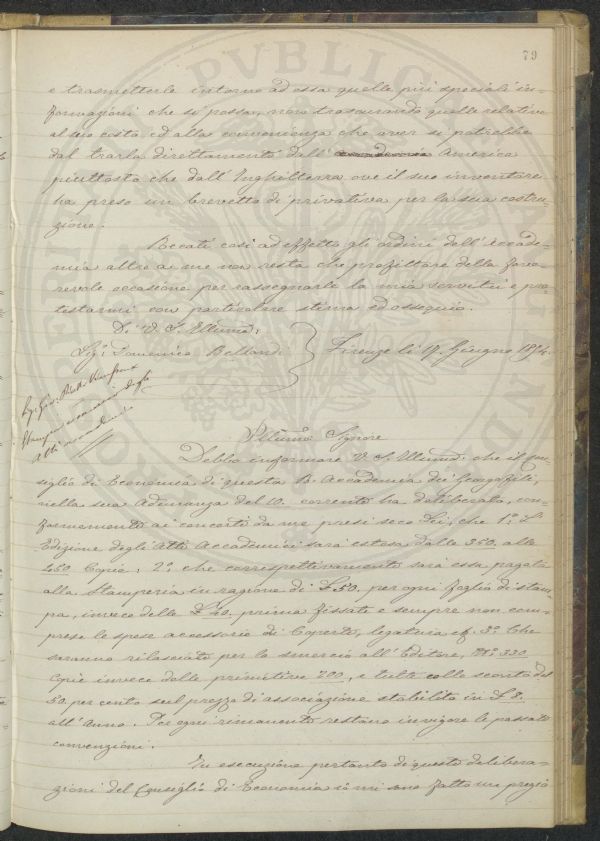 79
e trasmetterle intorno ad essa quelle più speciali in-
formazioni che si possa, non trascurando quelle relative
al suo costo ed alla convenienza che aver si potrebbe
dal trarla direttamente dall' America
piuttosto che dall' Inghilterra ove il suo inventore
ha preso un brevetto di privativa per la sua costru-
zione.
Recati così ad effetto gli ordini dell' Accade-
mia altro a me non resta che profittare della favo-
revole occasione per rassegnarle la mia servitù e pro-
testarmi con particolare stima ed ossequio.
Di V. S. Illuma:
Sigr. Domenico Bellandi
Firenze li 17. Giugno 1854.
Stampa
Atti accademici
Illumo. Signore
Debbo informare V. S. Illuma: che il Con-
siglio di Economia di questa R. Accademia dei Georgofili,
nella sua Adunanza del 10. corrente ha deliberato, con-
formemente ai concerti da me presi seco Lei, che 1o: L'
Edizione degli Atti Accademici sarà estesa dalle 350. alle
450 Copie: 2o. che correspettivamente sarà essa pagata
alla Stamperia in ragione di £ 50. per ogni foglio di stam-
pa, invece delle £ 40. prima fissate e sempre non com-
prese le spese accessorie di Coperte, legatura ec. 3o. Che
saranno rilasciate per lo smercio all' Editore, No. 330
Copie invece delle primitive 200, e tutte collo sconto del
50. per cento sul prezzo di associazione stabilito in £ 8.
all' Anno. Per ogni rimanente restano in vigore le passate
convenzioni.
In esecuzione pertanto di queste delibera-
zioni del Consiglio di Economia io mi sono fatto un pregio